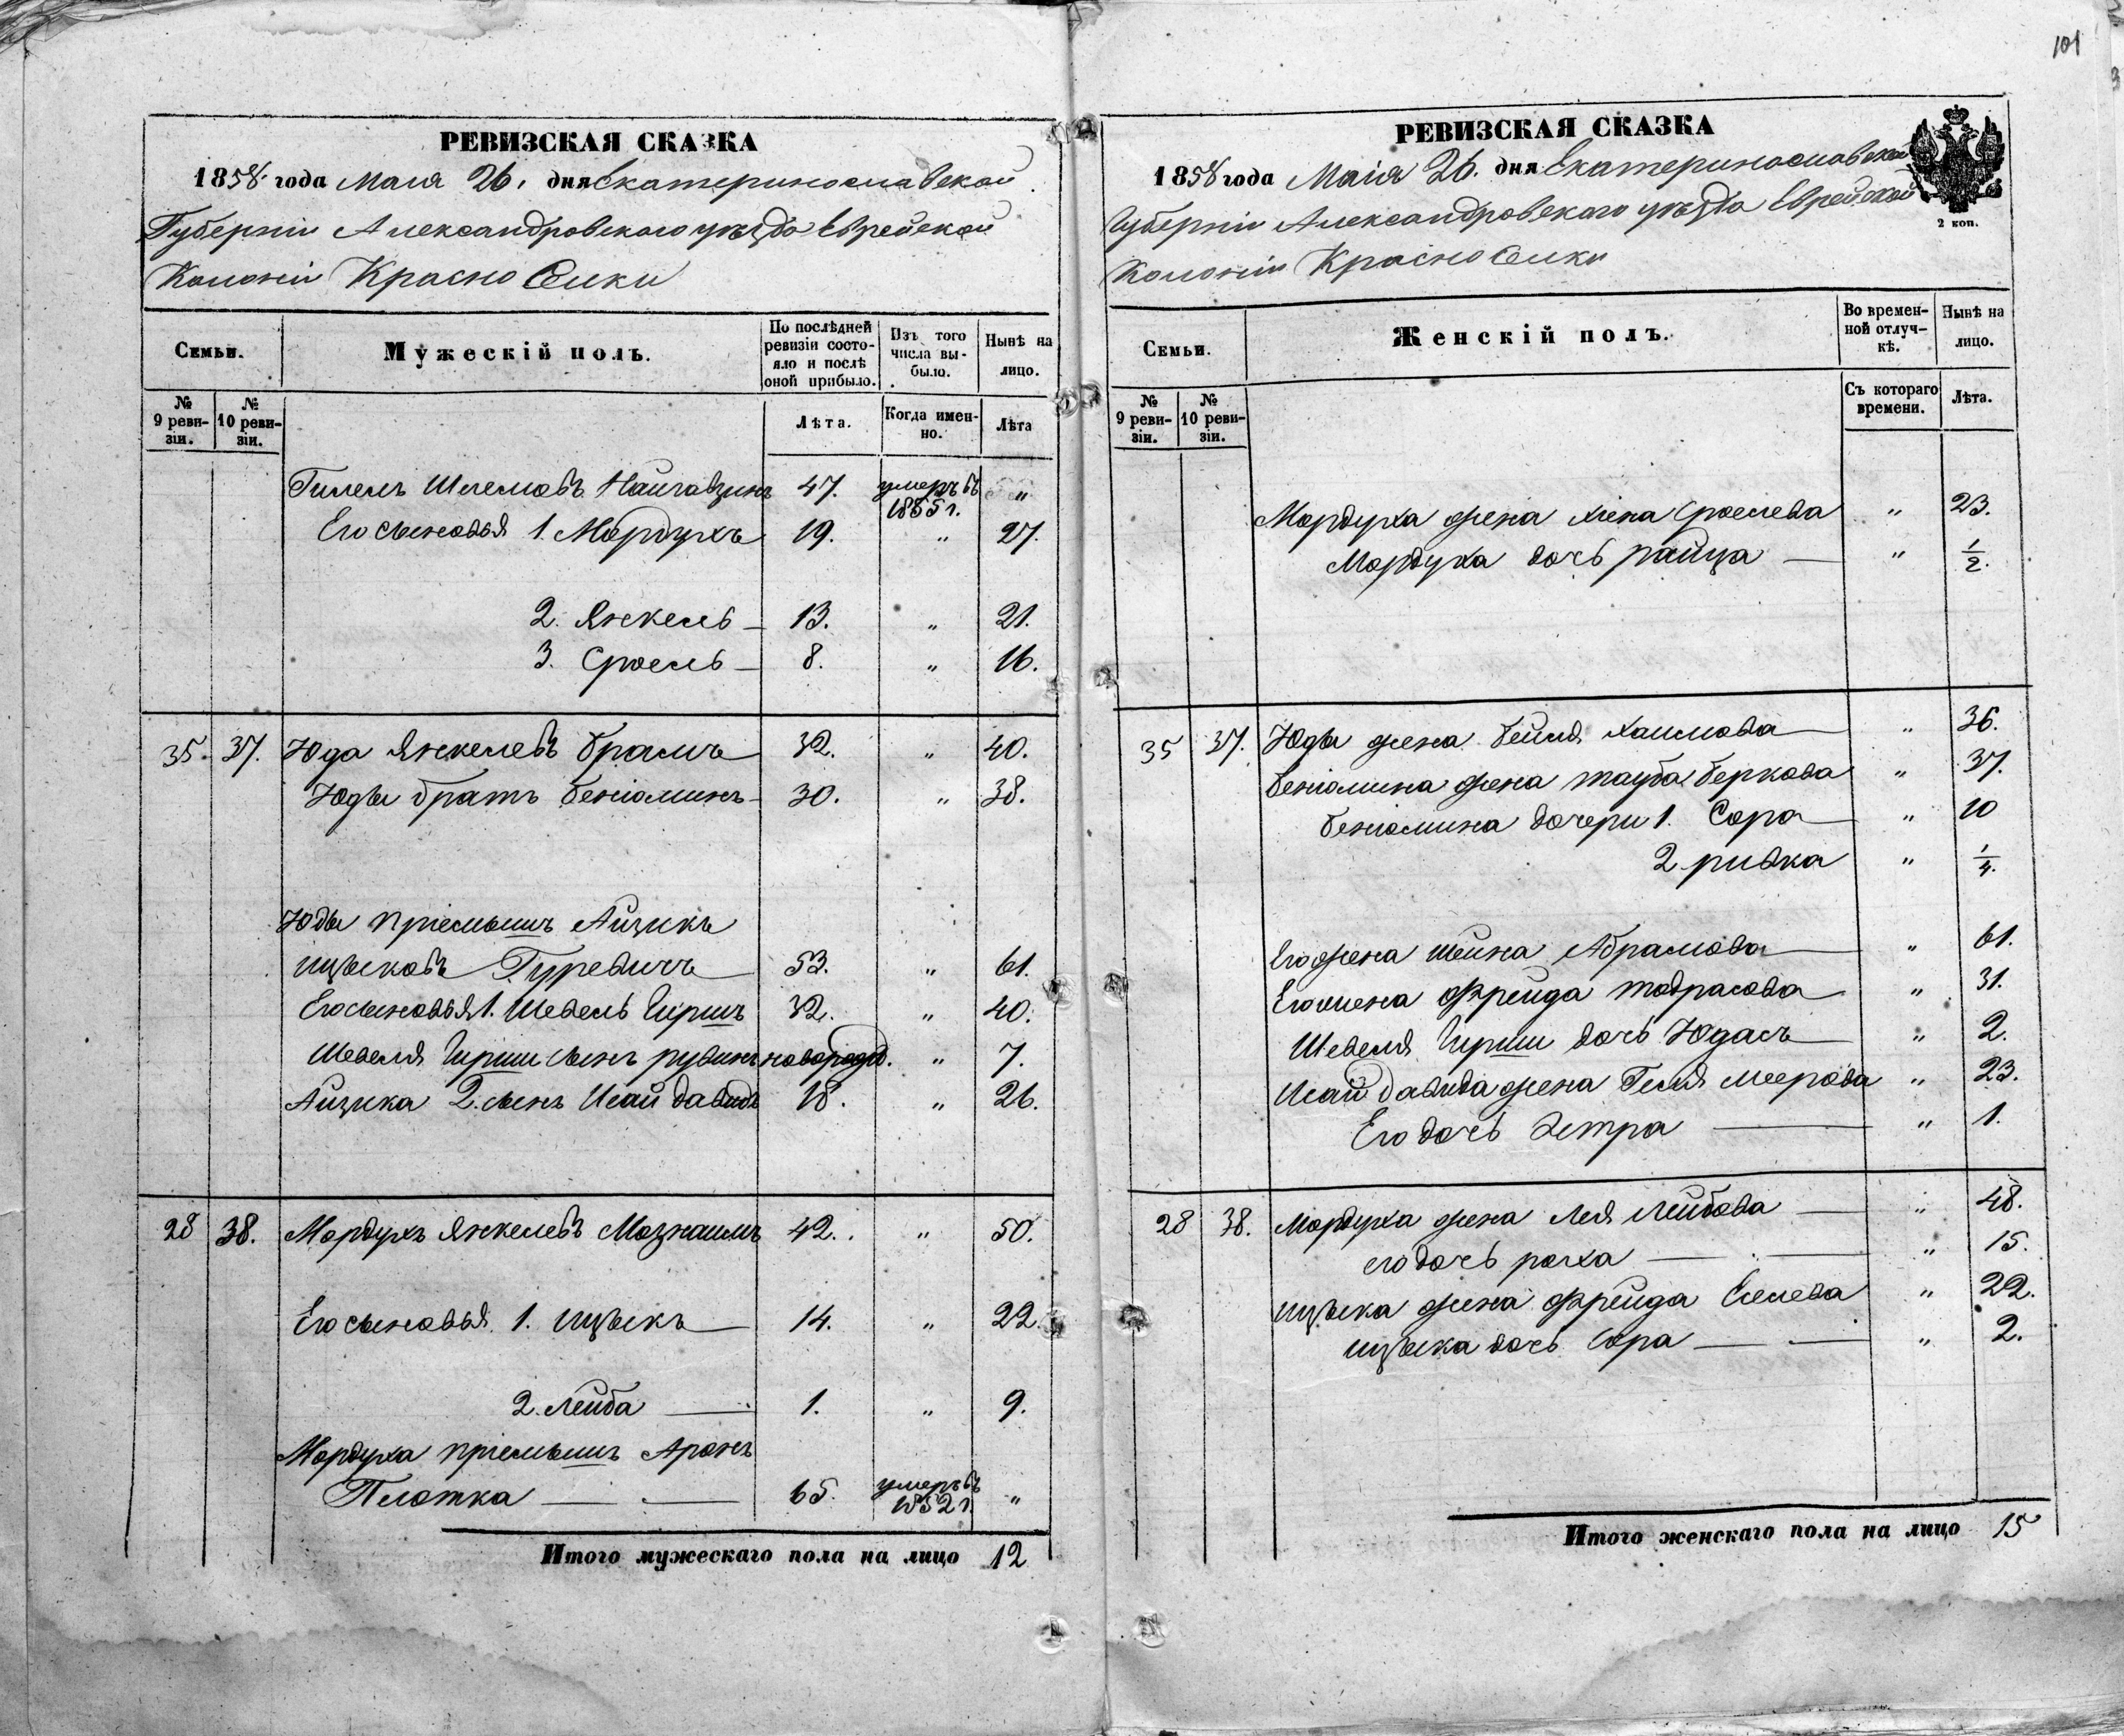 101
РЕВИЗСКАЯ СКАЗКА
1858 года Маия 26. дня Екатеринославской
Губерніи Александровскаго уѣзда Еврейской
Колоніи Красноселки
Семьи.
Мужескій полъ.
По послѣдней ревизіи состояло и послѣ оной прибыло.
Изъ того числа выбыло.
Нынѣ на лицо.
№ 9 ревизіи.
№ 10 ревизіи.
Лѣта.
Когда именно.
Лѣта
Гилель Шлемовъ 47. умеръ въ 1855 г. "
Его сыновья 1. Мордухъ 19. " 27.
2. Янкель 13. " 21.
3. Сроель 8. " 16.
35. 37. Юда Янкелевъ Брамъ 32. " 40.
Юды братъ Беніоминъ 30. " 38.
Юды пріемышъ Айзикъ
Ицъковъ Гуревичъ 53. " 61.
Его сыновья 1. Шевель Гиршъ 32. " 40.
Шевеля Гирши сынъ Рувинъ новорожд. " 7.
Айзика 2. сынъ Исай Давидъ 18. " 26.
28 38. Мордухъ Янкелевъ Мазнаимъ 42. " 50.
Его сыновья 1. Ицъекъ 14. " 22.
2. Лейба 1. " 9.
Мордуха пріемышъ Аронъ
Плотка 65. умеръ въ 1852 г. "
Итого мужескаго пола на лицо 12
РЕВИЗСКАЯ СКАЗКА
2 коп.
1858 года Маія 26. дня Екатеринославской
Губерніи Александровскаго уѣзда Еврейской
Колоніи Красноселки
Семьи.
Женскій полъ.
Во временной отлучкѣ.
Нынѣ на лицо.
№ 9 ревизіи.
№ 10 ревизіи.
Съ котораго времени.
Лѣта.
Мордуха жена Хіена Сроелева " 23.
Мордуха дочь Райца " 1/2.
35 37. Юды жена Бейля Хаимова " 36.
Беніомина жена Тауба Беркова " 37.
Беніомина дочери 1. Сора " 10
2. Ривка " 1/4.
Его жена Шейна Абрамова " 61.
Его жена Фрейда Тодрасова " 31.
Шевеля Гирши дочь Юдась " 2.
Исай Давида жена Геля Меерова " 23.
Его дочь Эстра " 1.
28 38. Мордуха жена Лея Лейбова " 48.
его дочь Рохха " 15.
Ицъека жена Фрейда Елева " 22.
Ицъека дочь Сора " 2.
Итого женскаго пола на лицо 15